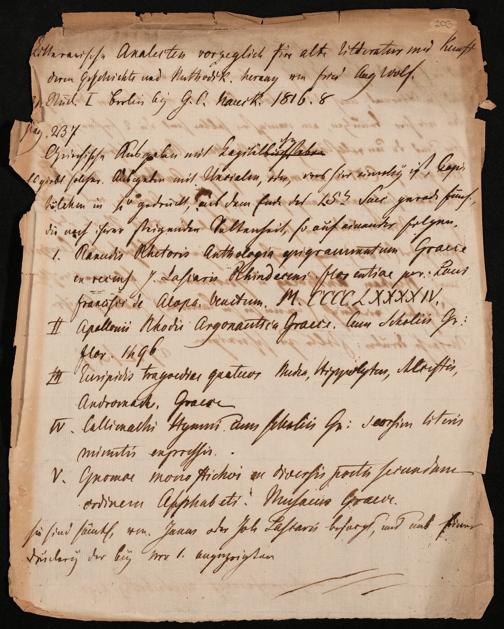 203
Litterarische Analecten vorzüglich für alte Litteratur und Kunst
deren Geschichte und Methodik. herausg. von Fried. Aug Wolf.
I Berlin bey G. C. Nauck. 1816. 8
pag. 237
Griechische Ausgaben mit
Es giebt solcher Ausgaben mit Uncialen, oder,
in so gedruckt, aus dem Ende des 15ten Saec gerade fünf,
die nach ihrer steigender Seltenheit, so auf einander folgen.
I. Planudis Rhetoris Anthologia epigrammatum Graece
ex recens J. Lascaris Rhindaceni florentiae per: Laur
francisci de Alopa Venetum. M. CCCCLXXXXIV.
II Apollonii Rhodii Argonautica Graece. cum Scholiis Gr:
flor. 1496
III Euripidis tragoediae quatuor Medea, Hippolytus, Alcestis,
Andromach. Graece
IV. Callimachi Hymni cum scholiis Gr: seorsim literis
minutis expressis.
V. Gnomae monostichoi ex diversis poetis secundum
ordinem Alphabeti. Musaeus Graece.
sie sind sämtl. von Janus oder Joh Lascaris besorgt, und
der bey nro 1. angezeigten